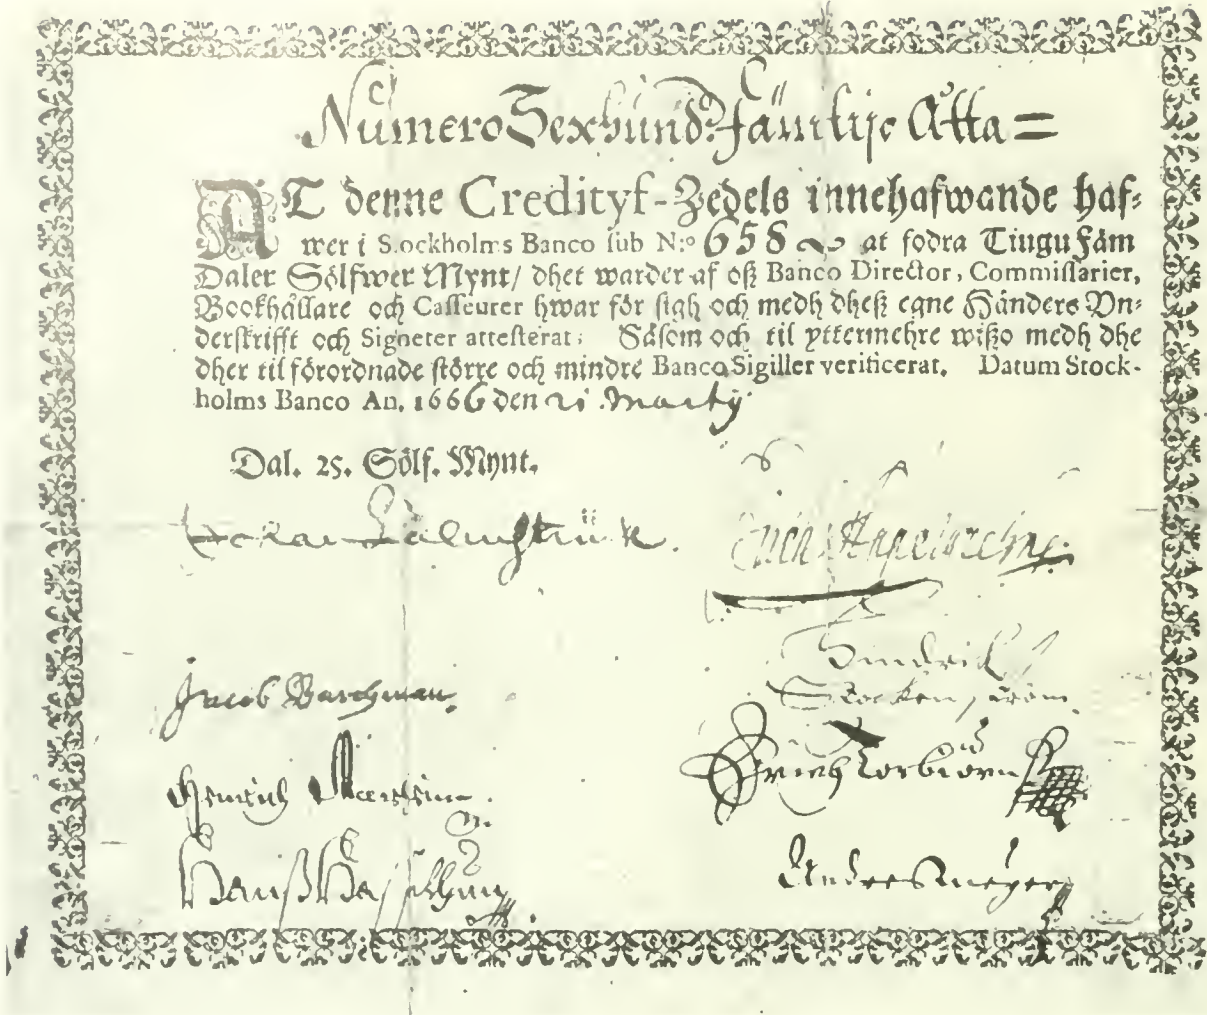 Numero Sexhund. Fämtije Åtta =
AT denne Credityf-Zedels innehafwande haf=
wer i Stockholms Banco sub N:o 658 at fodra Tiugu Fäm
Daler Sölfwer Mynt/ dhet warder af oß Banco Director, Commissarier,
Bookhållare och Casseurer hwar för sigh och medh dheß egne Händers Un=
derskrifft och Signeter attesterat; Såsom och til yttermehre wißo medh dhe
dher til förordnade större och mindre Banco Sigiller verificerat. Datum Stock-
holms Banco An. 1666 den 21. Martij
Dal. 25. Sölf. Mynt.
Palmstruck.
Jacob Barchman.
Hindrich
Hinrich
Erich Torbiörn
Hanß
Andres Meyer